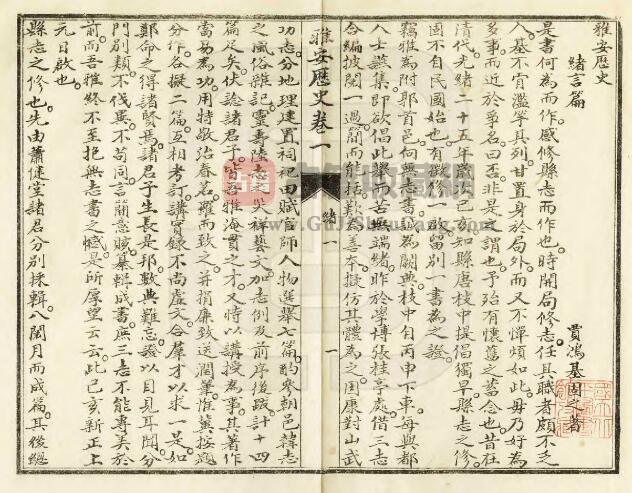 雅安歷史
緒言篇
賈鴻基圖之著
是書何為而作。感修縣志而作也。時開局修志。任其職者頗不乏
人。基不肯濫竽其列。甘置身於局外。而又不憚煩如此。毋乃好為
多事。而近於爭名。曰否。非是之謂也。予殆有懷舊之蓄念也。昔在
清代光緒二十五年歲次己亥。知縣唐枝中提倡獨早。縣志之修
國不自民國始也。有殘修一啟留別一書為之證
竊雅為附郭首邑。向無志書。詎為闕典。枝中自丙申下車。每與都
人士讌集。即欲倡此舉。而苦無端緒。昨於學博張桂亭處借三志
合編披閱一過。簡而能括。歎為善本。擬仿其體為之。因康對山武
功志。分地理建置祠祀田賦官師人物選舉七篇。酌參朝邑韓志
之風俗雜記。靈壽陸志之災祥藝文。加志例及前序後跋。計十四
篇足矣。伏諗諸君子。皆吾雅海貫之才。又恃以講授為事。其著作
當易為功。用特敬治春茗。羅而致之。并捐廉致送潤筆。惟冀按題
分作。各擬二篇。互相考訂。講實錄不尚虛文。合羣才以求一是。如
鄭命之得諸賢焉。諸君子生長是邦。數典難忘。證以目見耳聞。分
門別類。不伐異。不苟同。言簡意賅。纂輯成書。庶三志不能專美於
前。而吾雅終不至抱無志書之憾。是所厚望云云。此已亥新正上
元日啟也。
縣志之修也。先由蕭健堂諸君分別採輯。八閱月而成篇。其後總
雅安歷史卷一
緒一
一
www.GuJiShuWang.com